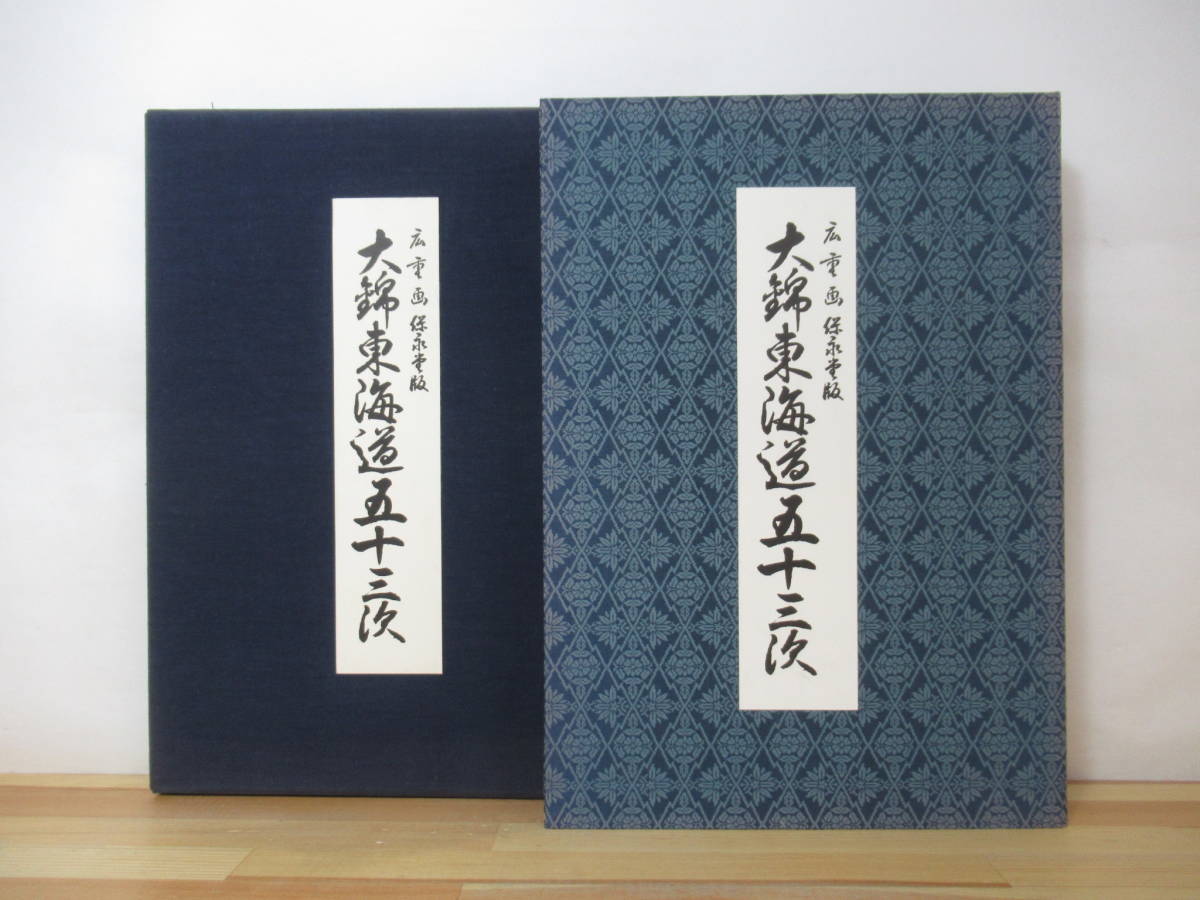 広重画 保永堂版
大錦東海道五十三次
広重画 保永堂版
大錦東海道五十三次